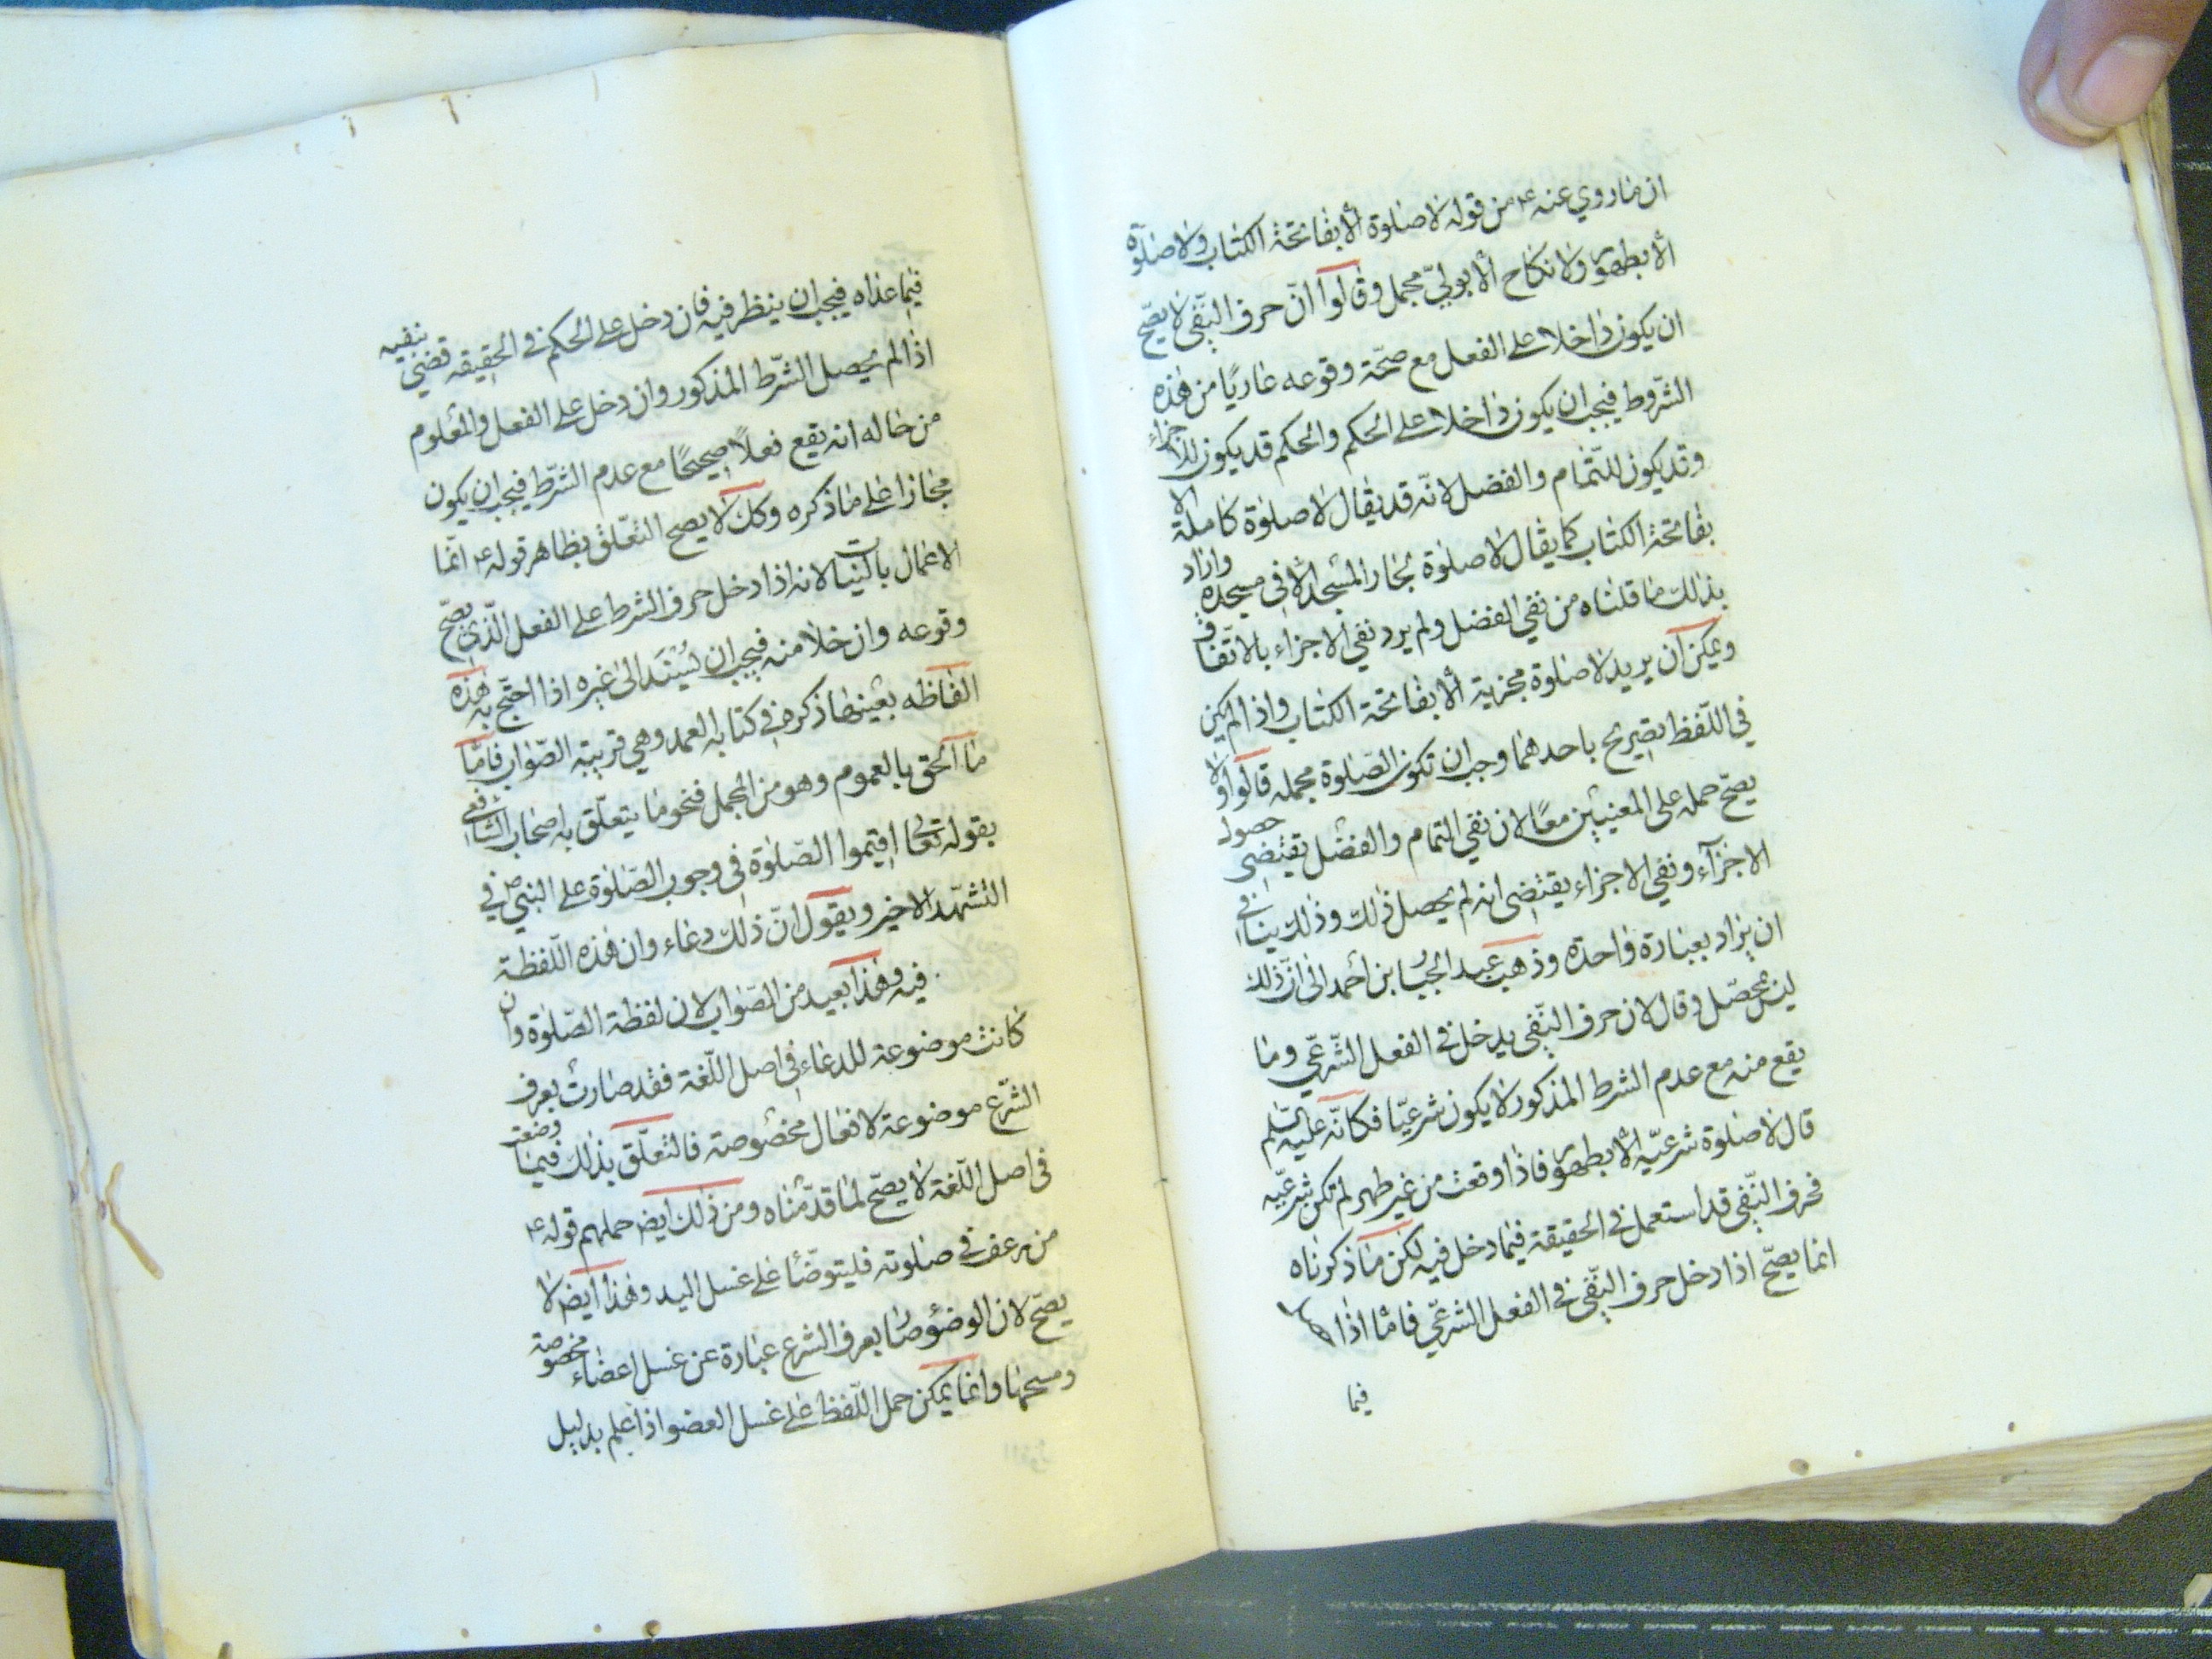 ان ما روي عنه ع من قوله لا صلوة الا بفاتحة الكتاب ولا صلوة
الا بطهور ولا نكاح الا بوليّ مجمل وقالوا انّ حرف النّفي لا يصّح
ان يكون داخلا على الفعل مع صحّة وقوعه عاريًا من هذه
الشّروط فيجب ان يكون داخلا على الحكم والحكم قد يكون للاجزاء
وقد يكون للتّمام والفضل لانّه قد يقال لا صلوة كاملة الا
بفاتحة الكتاب كما يقال لا صلوة لجار المسجد الّا في مسجده واراد
بذلك ما قلناه من نفي الفضل ولم يرد نفي الاجزاء بالاتّفاق
ويمكن ان يريد لا صلوة مجزية الا بفاتحة الكتاب واذا لم يكن
في اللّفظ تصريح باحدهما وجب ان تكون الصّلوة مجمله قالوا ولا
يصّح حمله على المعنيين معًا لان نفي التمام والفضل يقتضى حصول
الاجزآء ونفي الاجزاء يقتضى انه لم يحصل ذلك وذلك ينافي
ان يراد بعبارة واحدة وذهب عبد الجبّار بن أحمد الى انّ ذلك
ليس بمحصّل وقال لان حرف النّفي يدخل في الفعل الشّرعّي وما
يقع منه مع عدم الشرط المذكور لا يكون شرعيّا فكانّه عليه السّلم
قال لا صلوة شرعيّه الّا بطهور فاذا وقعت من غير طهر لم تكن شرعيّه
فحرف النّفي قد استعمل في الحقيقة فيما دخل فيه لكن ما ذكرناه
انما يصّح اذا دخل حرف النّفي في الفعل الشرعّي فامّا اذا
فيما
فيما عداه فيجب ان ينظر فيه فان دخل على الحكم في الحقيقه قضى بنفيه
اذا لم يحصل الشّرط المذكور وان دخل على الفعل والمعلوم
من حاله انه يقع فعلًا صحيحًا مع عدم الشّرط فيجب ان يكون
مجازا على ما ذكره وكك لا يصح التّعّلق بظاهر قوله ع انّما
الاعمال بالنيات لانه اذا دخل حرف الشرط على الفعل الّذي يصّح
وقوعه وان خلا منه فيجب ان يُسْتَنَد الى غيره اذا احتّج به هذه
الفاظه بعينها ذكره في كتابه العمد وهي قريبة الصّواب فامّا
ما الحق بالعموم وهو من المجمل فنحو ما يتعلّق به اصحاب الشّافعي
بقوله تعالى اقيموا الصّلوة في وجوب الصّلوة على النبي ص في
التشهّد الاخير ويقول انّ ذلك دعاء وان هذه اللّفظة
فيه وهذا بعيد من الصّواب لان لفظة الصّلوة وان
كانت موضوعة للدعاء في اصل اللّغة فقد صارت بعرف
الشّرع موضوعة لافعال مخصوصة فالتعلّق بذلك فيما وضعت
في اصل اللّغة لا يصّح لما قدّمناه ومن ذلك ايض حملهم قوله ع
من رعف في صلوته فليتوضّأ على غسل اليد وهذا ايض لا
يصّح لان الوضؤ صار بعرف الشرع عبارة عن غسل اعضاء مخصوصة
ومسحها وانما يمكن حمل اللّفظ على غسل العضو اذا علم بدليل